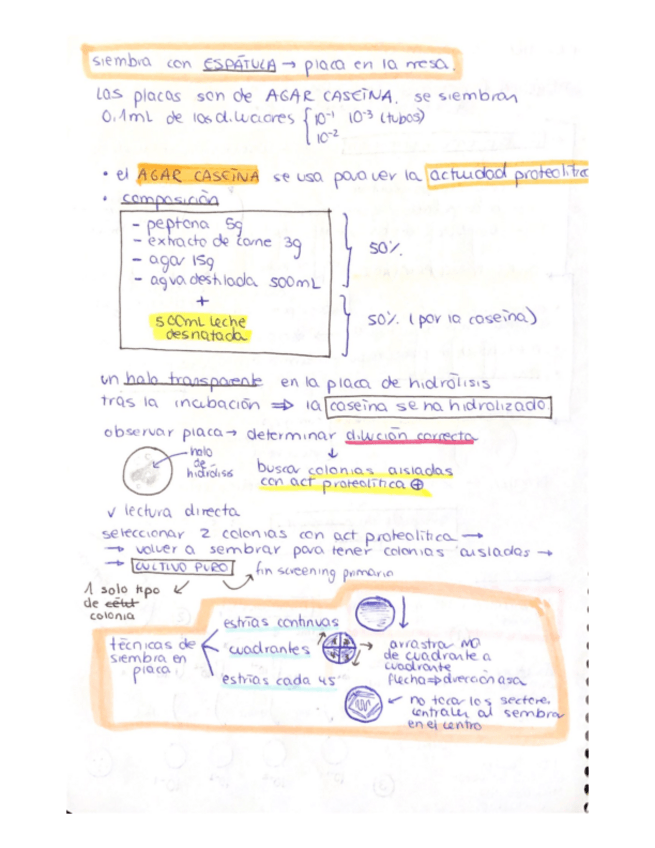 siembra con ESPÁTULA → placa en la mesa.
Las placas son de AGAR CASEÍNA. se siembran
0,1mL de las diluciones { 10⁻¹ 10⁻³ (tubos)
10⁻²
• el AGAR CASEÍNA se usa para ver la actividad proteolítica
• composición
- peptona 5g
- extracto de carne 3g
- agar 15g
- agua destilada 500mL
50%.
+
500mL leche
desnatada
50%. (por la caseína)
un halo transparente en la placa de hidrólisis
tras la incubación ⇒ la caseína se ha hidralizado
observar placa → determinar dilución correcta
↓
halo
de
hidrólisis
buscar colonias aisladas
con act proteolítica ⊕
√ lectura directa
seleccionar 2 colonias con act proteolítica →
→ volver a sembrar para tener colonias aisladas →
→ CULTIVO PURO
fin screening primario
1 solo tipo
de célul
colonia
técnicas de
siembra en
placa
estrías continuas
cuadrantes
estrías cada 45°
→ arrastra MO
de cuadrante a
cuadrante
flecha ⇒ dirección asa
← no tocar los sectores
centrales al sembrar
en el centro